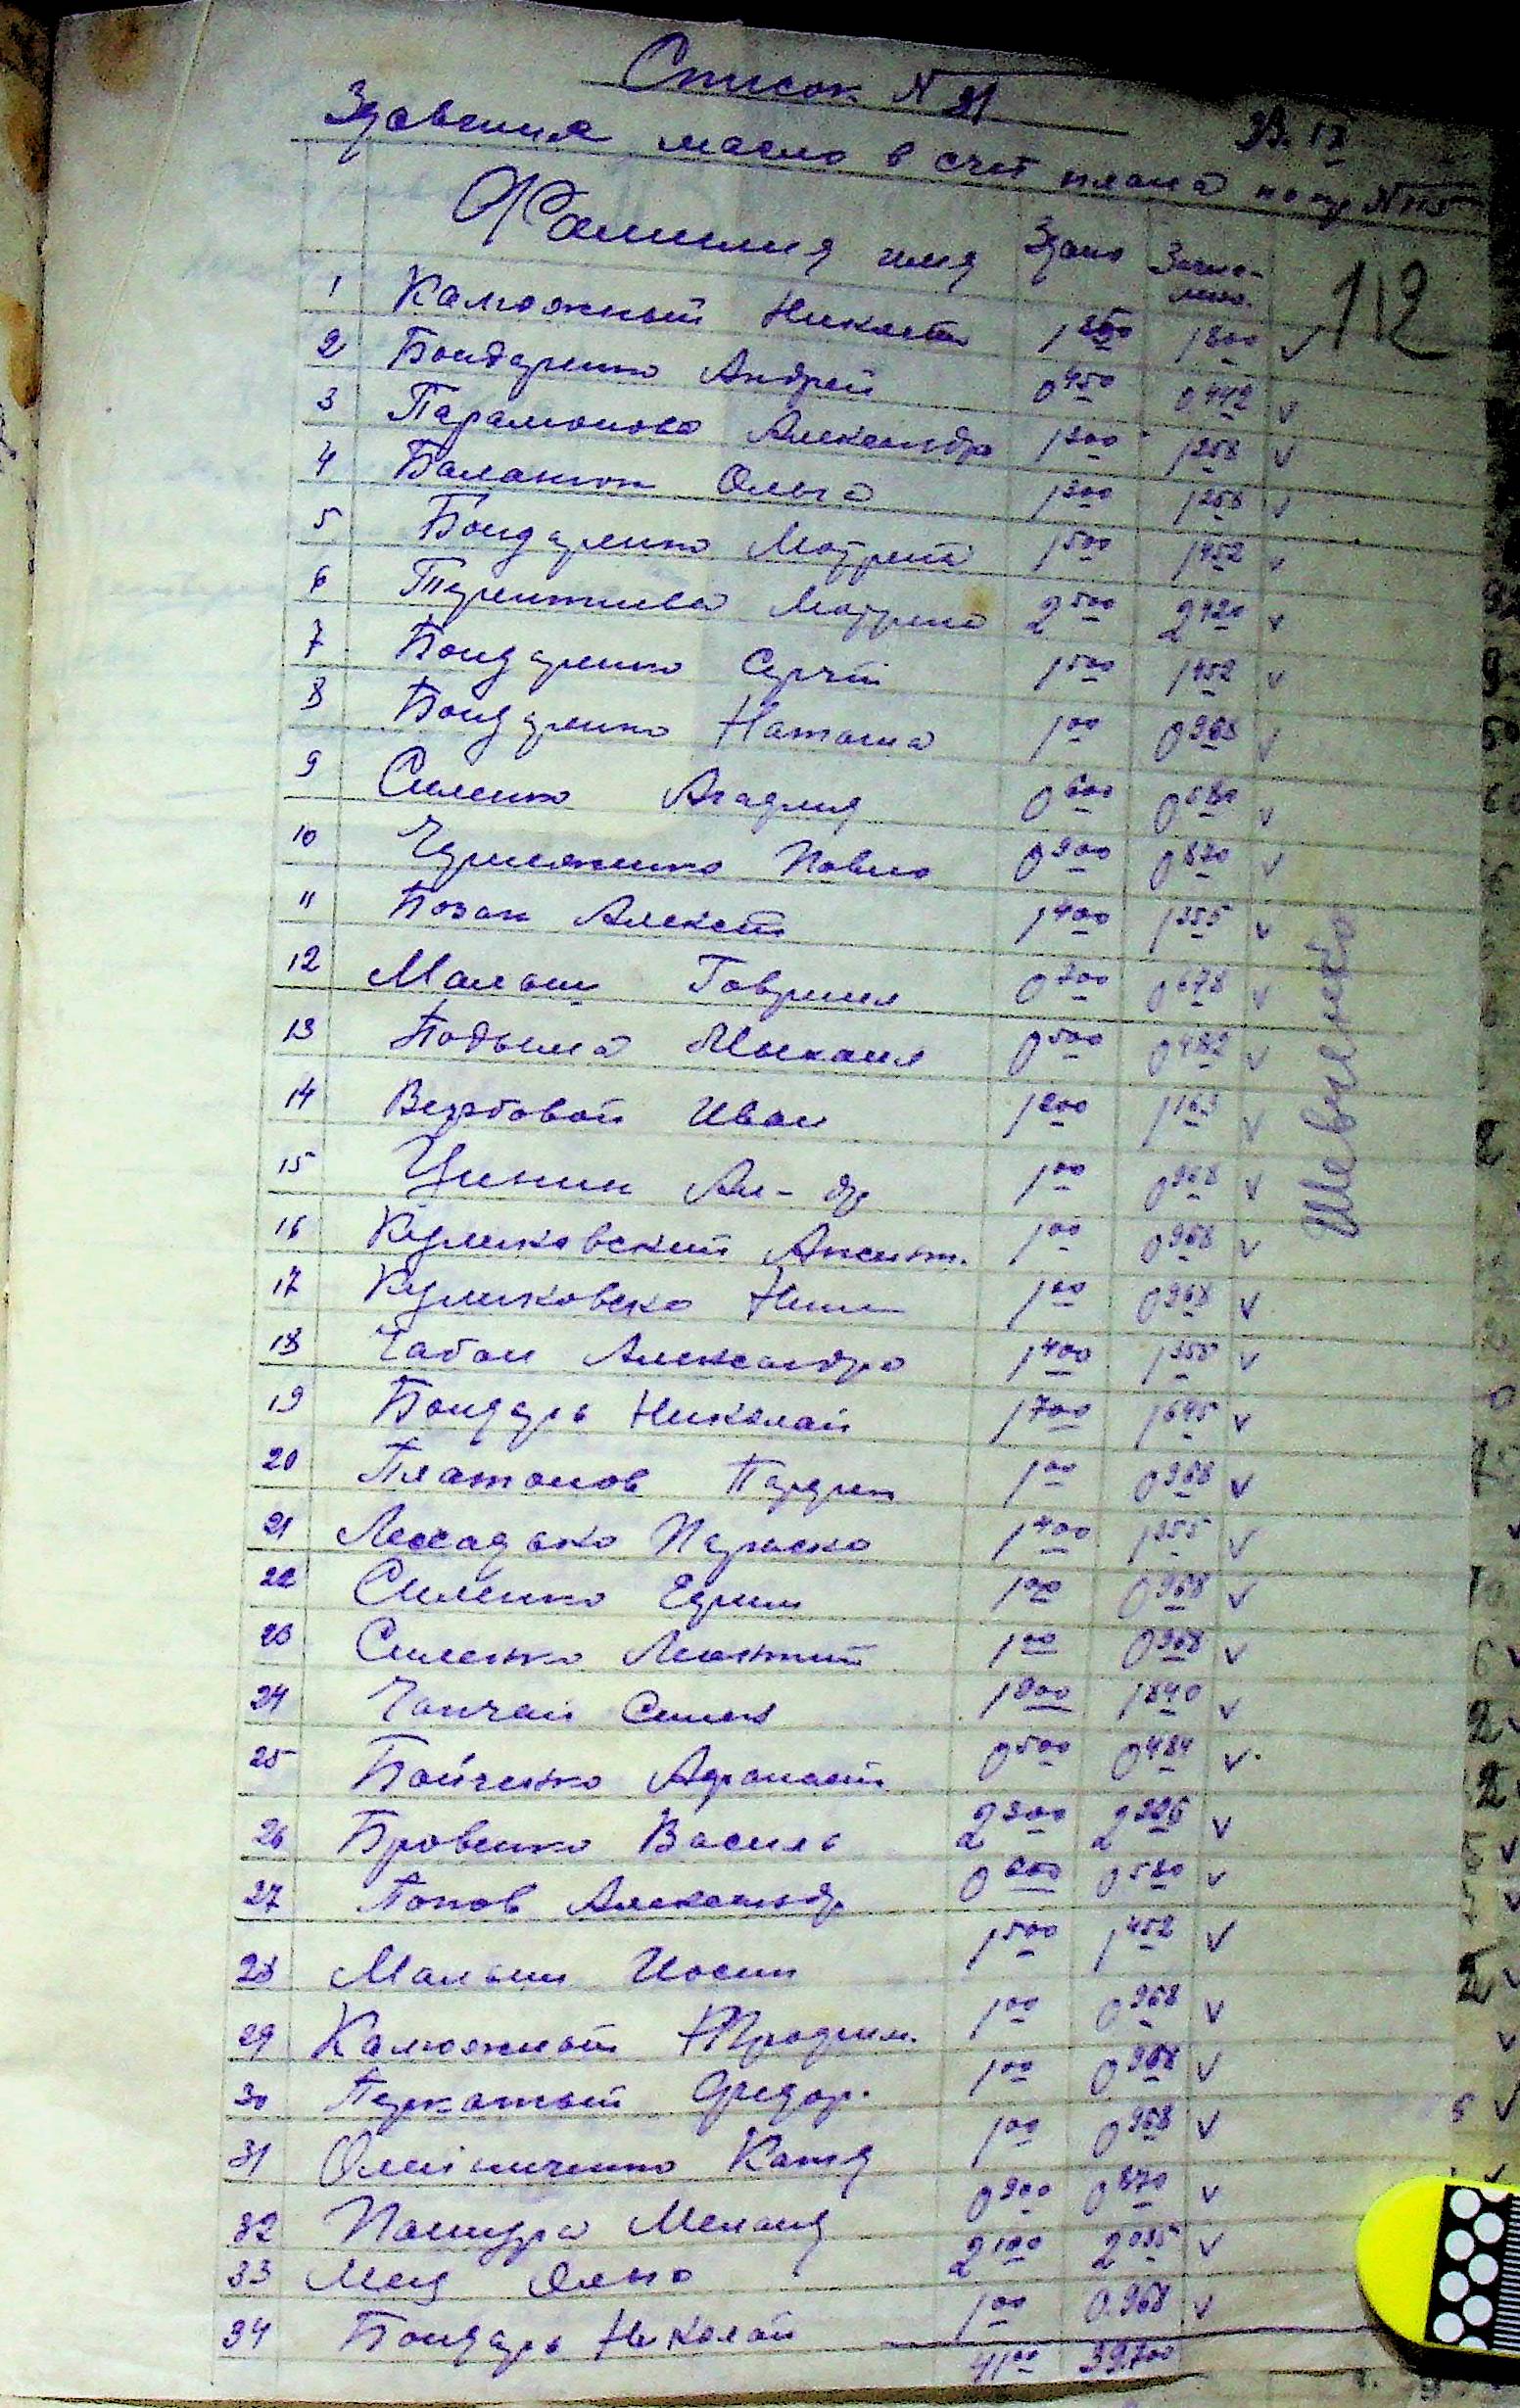 Список N 21
23. IX
Здавших масло в счет плана по гу N 115
Фамилия имя Здано Зачис-
лено.
112
1 Калюжный Никита 1 850 1 800 v
2 Бондаренко Андрей 0 450 0,442 v
3 Парамонова Александра 1 300 1 258 v
4 Баланюк Ольга 1 300 1 258 v
5 Бондаренко Мотрена 1 500 1 452 v
6 Терентиева Мотрена 2 500 2 420 v
7 Бондаренко Сергей 1 500 1 452 v
8 Бондаренко Наташа 1 00 0 968 v
9 Силенко 0 600 0 580 v
10 Павло 0 900 0 870 v
11 Бозан Алексей 1 400 1 355 v
12 Малыш Гаврил 0 700 0 678 v
13 Подыма Михаил 0 500 0 482 v
14 Вербовой Иван 1 200 1 163 v
15 Ал-др 1 00 0 968 v
16 Куликовский Аксент. 1 00 0 968 v
17 Куликовска Нина 1 00 0 968 v
18 Чабан Александра 1 400 1 355 v
19 Бондарь Николай 1 700 1 645 v
20 Платонов 1 00 0 968 v
21 Параска 1 400 1 355 v
22 Силенко Ефим 1 00 0 968 v
23 Силенко Леонтий 1 00 0 968 v
24 Чапчай Семен 1 900 1 840 v
25 Бойченко Афанасий 0 500 0 484 v
26 Бровенко Василь 2 300 2 225 v
27 Попов Александр 0 600 0 580 v
28 Малыш Иосип 1 500 1 452 v
29 Калюжный 1 00 0 968 v
30 Федор. 1 00 0 968 v
31 Олейниченко Катя 1 00 0 968 v
32 Пашура Мелан 0 900 0 870 v
33 2 100 2 035 v
34 Бондарь Николай 1 00 0.968 v
41 00 39.700
Шевченко